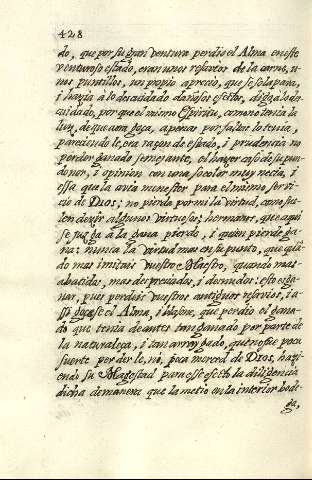 428
do, que por su gran ventura perdio el Alma en este
venturoso estado, eran unos resavios de la carne, u-
nos puntillos, un propio aprecio, que se solapava,
i hazia a lo descuidado dañosos efectos, digo a lo des-
cuidado, por que el mismo Espiritu, como no tenia la
luz, de que aora goza, apenas por faltas lo tenia,
pareciendole, era razon de estado, i prudencia no
perder ganado semejante, el hazer caso de su pun-
donor, i opinion con una so color mui necia, i
essa que la avia menester para el mismo servi-
cio de DIOS; no pierda por mi la virtud, como sue-
len dezir algunos virtuosos; hermanos, que aqui
se juega à la gana pierde, i quien pierde ga-
na: nunca la virtud mas en su punto, que quã-
do mas imitais vuestro Maestro, quando mas
abatidos, mas despreciados, i desnudos: esto es ga-
nar, pues perdeis vuestros antiguos resavios, i a-
ssi gozase el Alma, i hazese, que perdio el gana-
do que tenia de antes tan ganado por parte de
la naturaleza, i tan arraygado, que no fue poca
suerte perderle, ni, poca merced de DIOS, hazi-
endo su Magestad para esse efecto la diligencia
dicha de manera que la metio en la interior bode-
ga,